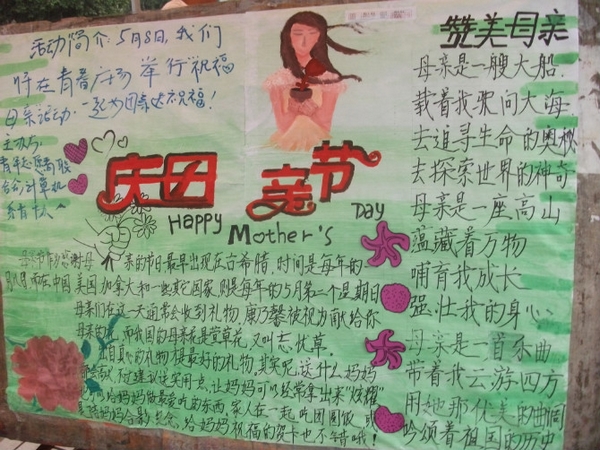 活动简介:5月8日,我们
将在青春广场举行祝福
母亲活动.一起为母亲送祝福!
主办方:
庆母亲节
Happy Mother's Day
赞美母亲
母亲是一艘大船.
载着我驶向大海
去追寻生命的奥秘
去探索世界的神奇
母亲是一座高山
蕴藏着万物
哺育我成长
强壮我的身心.
母亲是一首乐曲
带着我云游四方
用她那优美的曲调
吟颂着祖国的历史
亲的节日最早出现在古希腊,时间是每年的一
月8日,而在中国,美国,加拿大和一些其它国家,则是每年的5月第二个星期日
母亲们在这一天通常会收到礼物,康乃馨被视为献给你
母亲的花,而我国的母亲花是萱草花,又叫忘忧草.
出自真心的礼物,是最好的礼物,其实呢,送什么妈妈
不过建议送实用点,让妈妈可以经常拿出来"炫耀"
给妈妈做最爱吃的东西,家人在一起吃团圆饭,或
妈妈合影留念,给妈妈祝福的贺卡也不错哦!